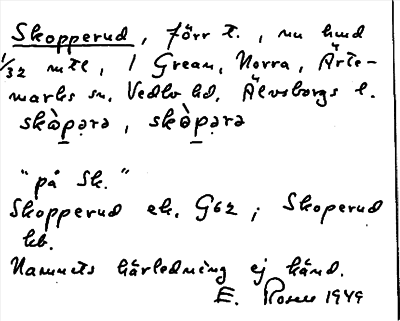 Skopperud, förr t., nu hmd
1/32 mtl, i Grean, Norra, Ärte-
marks sn, Vedbo hd, Älvsborgs l.
skὰp̠ərə, skὰp̠ərə
"på Sk."
Skopperud ek. G62; Skoperud
kb.
Namnets härledning ej känd.
E. Rosell 1949